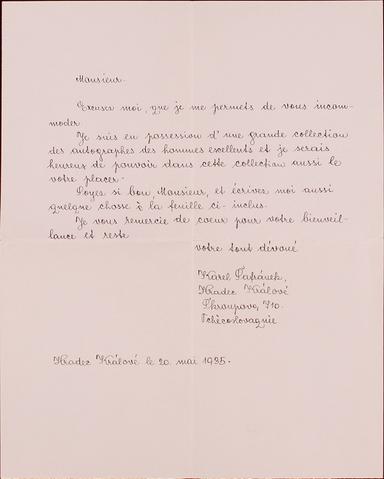 Monsieur.
Excusez moi, que je me permets de vous incom-
moder.
Je suis en possession d'une grande collection
des autographes des hommes excellents et je serais
heureux de pouvoir dans cette collection aussi le
votre placer.
Soyez si bon Monsieur, et écrives moi aussi
quelque chose à la feuille ci-inclus.
Je vous remercie de coeur pour votre bienveil-
lance et reste
votre tout dévoué
Karel Šafránek,
Hradec Králové
Škroupova, 710.
Tchècoslovaquie
Hradec Králové le 20. mai 1935.